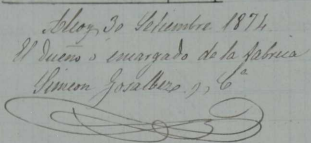 Alcoy, 30 Setiembre 1874
El dueño o encargado de la fabrica
Simeon Gosalbez y Cª